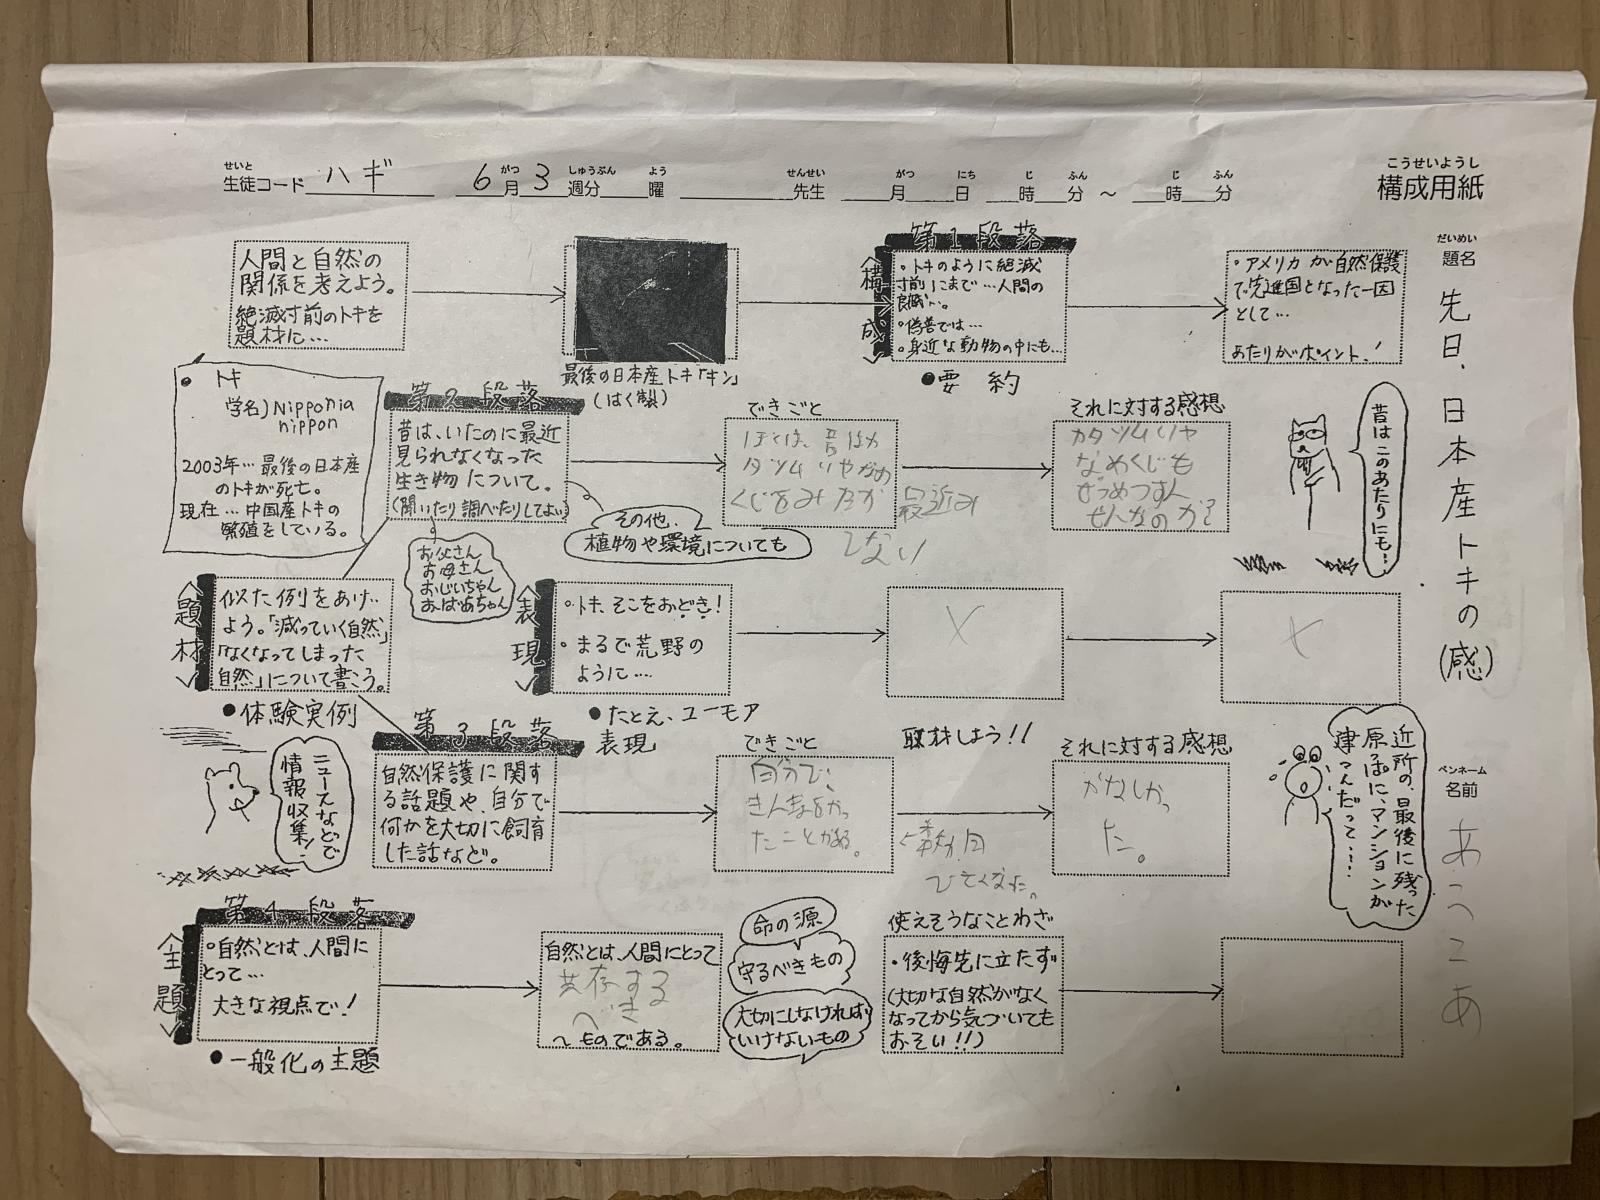 せいと
生徒コード ハギ 6月3週分 曜 先生 月 日 時 分 ～ 時 分
がつ しゅうぶん よう せんせい がつ にち じ ふん じ ふん
こうせいようし
構成用紙
だいめい
題名
先日、日本産トキの(感)
ペンネーム
名前
あっこあ
人間と自然の
関係を考えよう。
絶滅寸前のトキを
題材に…
最後の日本産トキ「キン」
(はく製)
第1段落
<構成>
・トキのように絶滅
寸前にまで…人間の
良識…。
・偽善では…
・身近な動物の中にも…
●要約
・アメリカが自然保護
で先進国となった一因
として…
あたりがポイント!
トキ
学名)Nipponia
nippon
2003年…最後の日本産
のトキが死亡。
現在…中国産トキの
繁殖をしている。
第2段落
昔は、いたのに最近
見られなくなった
生き物について。
(聞いたり調べたりしてよい)
お父さん
お母さん
おじいちゃん
おばあちゃん
その他、
植物や環境についても
できごと
ぼくは、昔はカ
タツムリやなめ
くじをみたが
最近み
てない
それに対する感想
カタツムリや
なめくじも
ぜつめつすん
ぜんなのか?
昔はこのあたりにも…
<題材>
似た例をあげ
よう。「減っていく自然」
「なくなってしまった
自然」について書こう。
●体験実例
<表現>
・トキ、そこをおどき!
・まるで荒野の
ように…
●たとえ、ユーモア
表現
取材しよう!!
近所の、最後に残った
原っぱに、マンションが
建つんだって……
ニュースなどで
情報収集!
第3段落
自然保護に関す
る話題や、自分で
何かを大切に飼育
した話など。
できごと
自分で、
きんぎょをかっ
たことがある。
それに対する感想
かなしかっ
た。
第4段落
<主題>
・自然とは、人間に
とって…
大きな視点で!
●一般化の主題
自然とは、人間にとって
共存する
べき
～ものである。
命の源
守るべきもの
大切にしなければ
いけないもの
使えそうなことわざ
・後悔先に立たず
(大切な自然がなく
なってから気づいても
おそい!!)